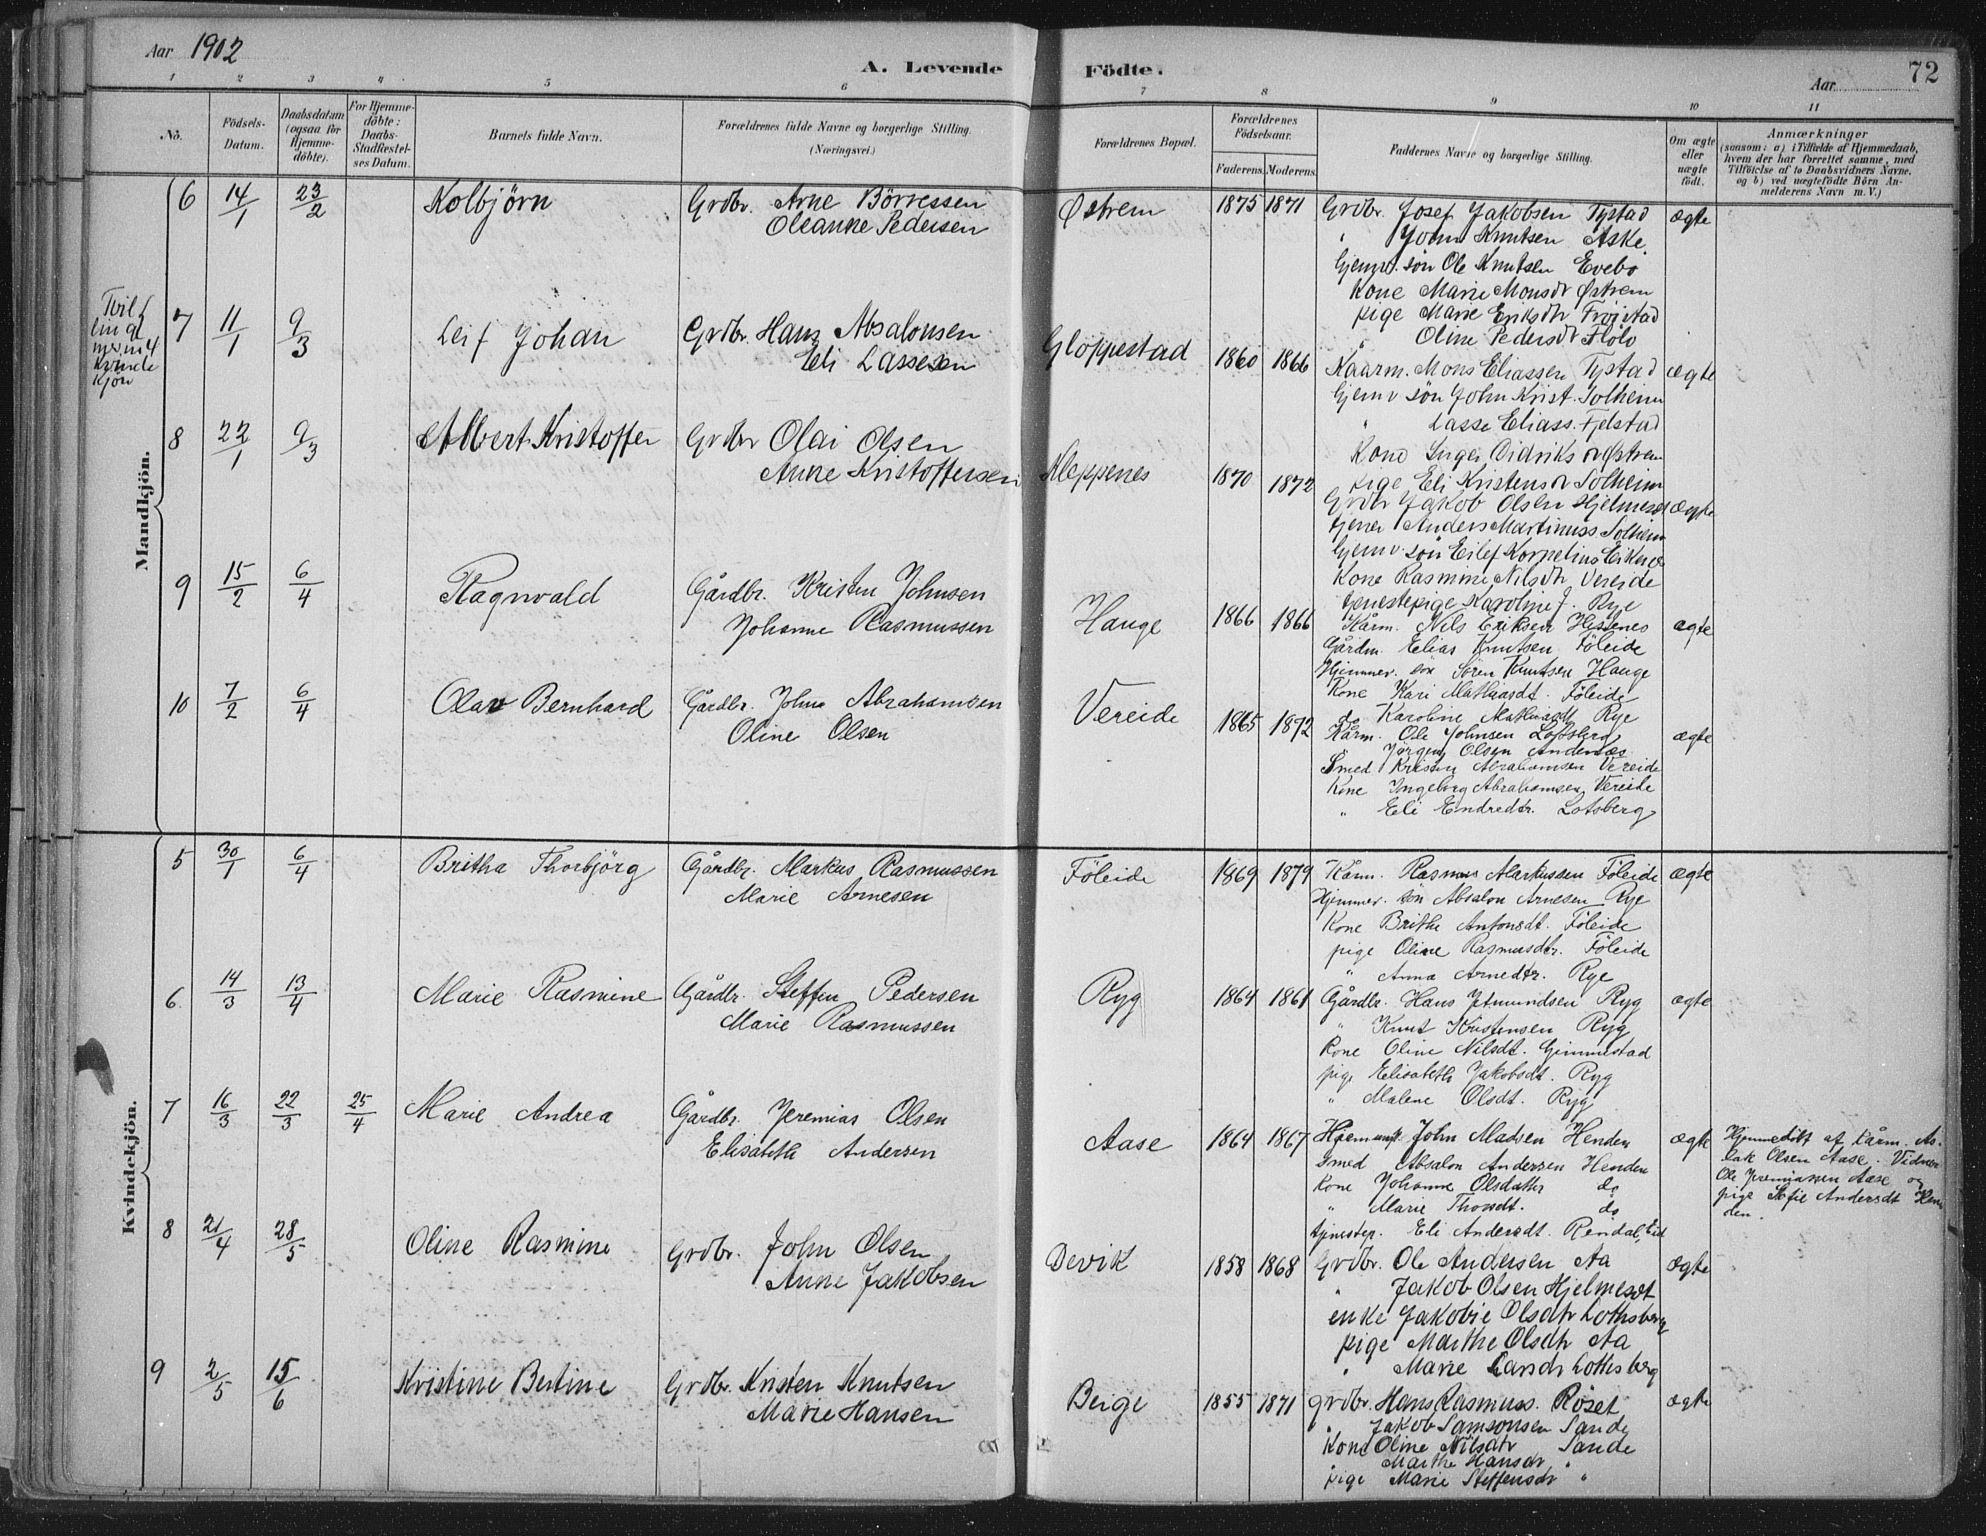 Aar 1902
A. Levende Födte.
Aar 72
1 2 3 4 5 6 7 8 9 10 11
No.
Födsels-Datum.
Daabsdatum (ogsaa for Hjemme-döbte).
For Hjemme-döbte: Daabs-Stadfestel-ses Datum.
Barnets fulde Navn.
Forældrenes fulde Navne og borgerlige Stilling. (Næringsvei.)
Forældrenes Bopæl.
Forældrenes Födselsaar.
Faderens. Moderens.
Faddernes Navne og borgerlige Stilling.
Om ægte eller uægte födt.
Anmærkninger
(saasom: a) i Tilfælde af Hjemmedaab,
hvem der har forrettet samme, med
Tilföielse af to Daabsvidners Navne.
og b) ved uægtefödte Börn An-
melderens Navn m. V.)
Mandkjön.
6 14/1 23/2 Kolbjörn Grdbr. Arne Börressen
Oleanne Pedersen
Østrem 1875 1871 Grdbr. Josef Jakobsen Tystad ægte
" John Knutsen Aske
Gjemv. sön Ole Knutsen Evebö
Kone Marie Monsdr Østrem
pige Marie Eriksdtr Fröistad
" Oline Pedersdr Flölo
Tvil
ling
med
kvinde
kjön
7 11/1 9/3 Leif Johan Grdbr. Hans Absalonsen
Eli Lassesen
Gloppestad 1860 1866 Kaarm. Mons Eliassen Tystad ægte
Gjemv sön John Krist. Solheim
" Lasse Eliass. Fjelstad
Kone Inger Didriksdr Østrem
pige Eli Kristensdr Solheim
8 22/1 9/3 Albert Kristoffer Grdbr Olai Olsen
Anne Kristoffersen
Kleppenes 1870 1872 Grdbr Jakob Olsen Hjelmeset ægte
tjener Anders Martinuss. Solheim
Gjemv. sön Eilef Kornelius Eikenes
Kone Rasmine Nilsdtr Vereide
tjenestepige Karoline J. Rye
9 15/2 6/4 Ragnvald Gårdbr. Kristen Johnsen
Johanne Rasmussen
Hauge 1866 1866 Kårm. Nils Eriksen Hestenes ægte
Gårdm. Elias Knutsen Föleide
Hjemmev. sön Sören Knutsen Hauge
Kone Kari Mathiasdt. Föleide
do Karoline Mathiasdt Rye
10 7/2 6/4 Olav Bernhard Gårdbr. John Abrahamsen
Oline Olsen
Vereide 1865 1872 Kårm. Ole Johnsen Lotsberg ægte
Jörgen Olsen Andenæs
Smed Kristen Abrahamsen Vereide
Kone Ingeborg Abrahamsen Vereide
" Eli Endredtr. Lotsberg
Kvindekjön.
5 30/1 6/4 Britha Thorbjörg Gårdbr. Markus Rasmussen
Marie Arnesen
Föleide 1869 1879 Kårm. Rasmus Markussen Föleide ægte
Hjemmev. sön Absalon Arnesen Rye
Kone Brithe Antonsdt. Föleide
pige Oline Rasmusdtr. Föleide
" Anna Arnedtr. Rye
6. 14/3 13/4 Marie Rasmine Gårdbr. Steffen Pedersen
Marie Rasmussen
Ryg 1864 1861 Gårdbr. Hans Jetmundsen Ryg ægte
" Knut Kristensen Ryg
Kone Oline Nilsdt. Gimmestad
pige Elisabeth Jakobsdt. Ryg
" Malene Olsdt. Ryg
7 16/3 22/3 25/4 Marie Andrea Gårdbr. Jeremias Olsen
Elisabeth Andersen
Aase 1864 1867 John Madsen Henden ægte Hjemmedöbt af kårm. As-
lak Olsen Aase. Vidner
Ole Jeremiassen Aase og
pige Sofie Andersdt Hen
den.
Smed Absalon Andersen Henden
Kone Johanne Olsdatter do
" Marie Thosdt. do
tjenestep. Eli Andersdt. Rendal
8 21/4 28/5 Oline Rasmine Grdbr. John Olsen
Anne Jakobsen
Devik 1858 1868 Grdbr. Ole Andersen Aa ægte
" Jakob Olsen Hjelmeset
enke Jakobie Olsdtr Lothsberg
pige Marthe Olsdtr Aa
" Marie Larsdr Lothsberg
9 2/5 15/6 Kristine Bertine Grdbr. Kristen Knutsen
Marie Hansen
Beige 1855 1871 grdbr. Hans Rasmuss. Röset ægte
" Jakob Samsonsen Sande
Kone Oline Nilsdtr Sande
" Marthe Hansdr "
pige Marie Steffensdr "